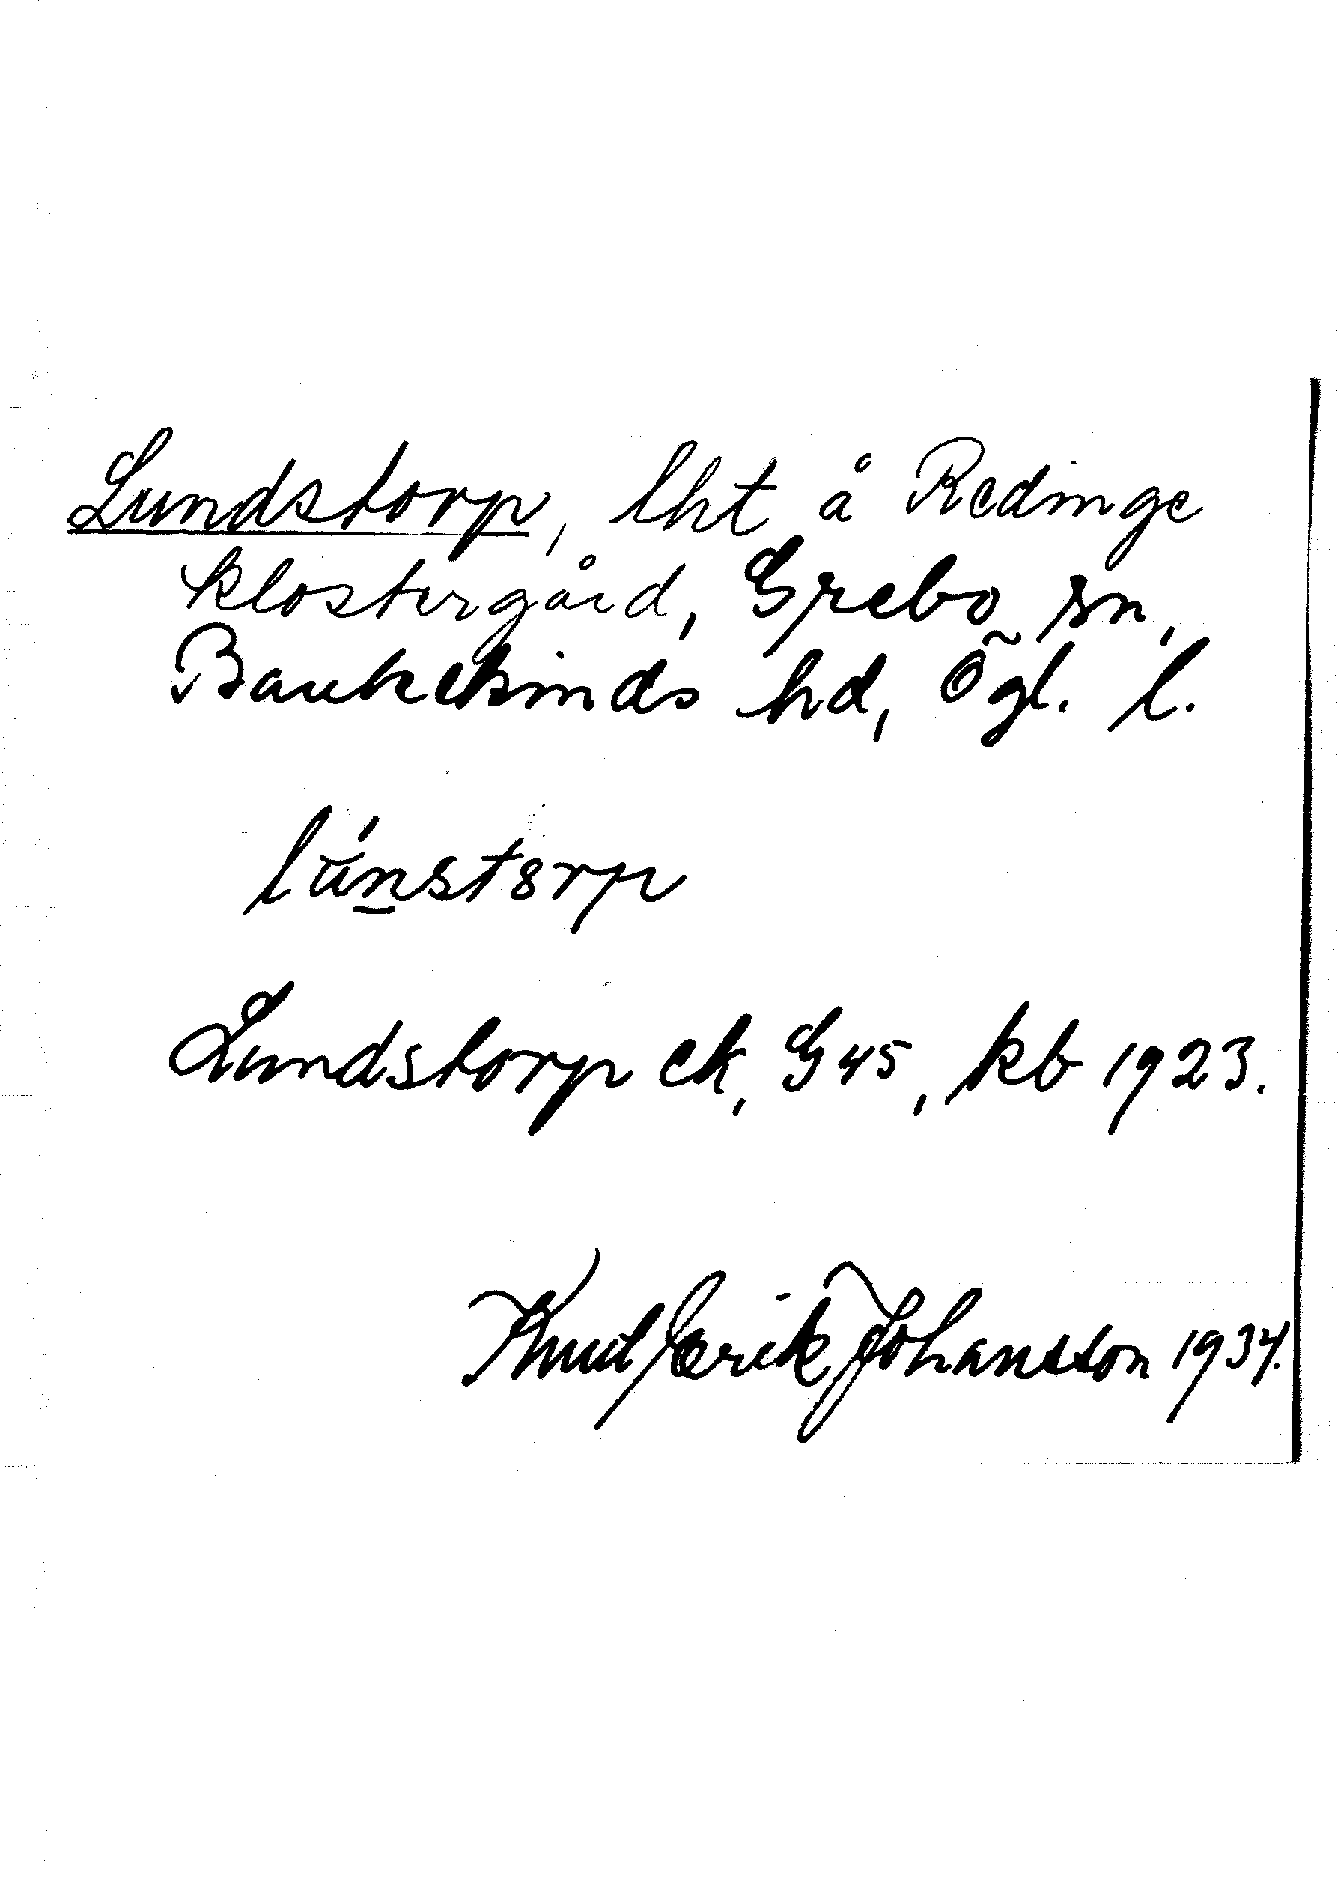 Lundstorp, lht å Redinge
klostergård, Grebo sn,
Bankekinds hd, Ögl. l.
lúnstɞrp
Lundstorp ek, G 45, kb 1923.
Knut Erik Johansson 1934.